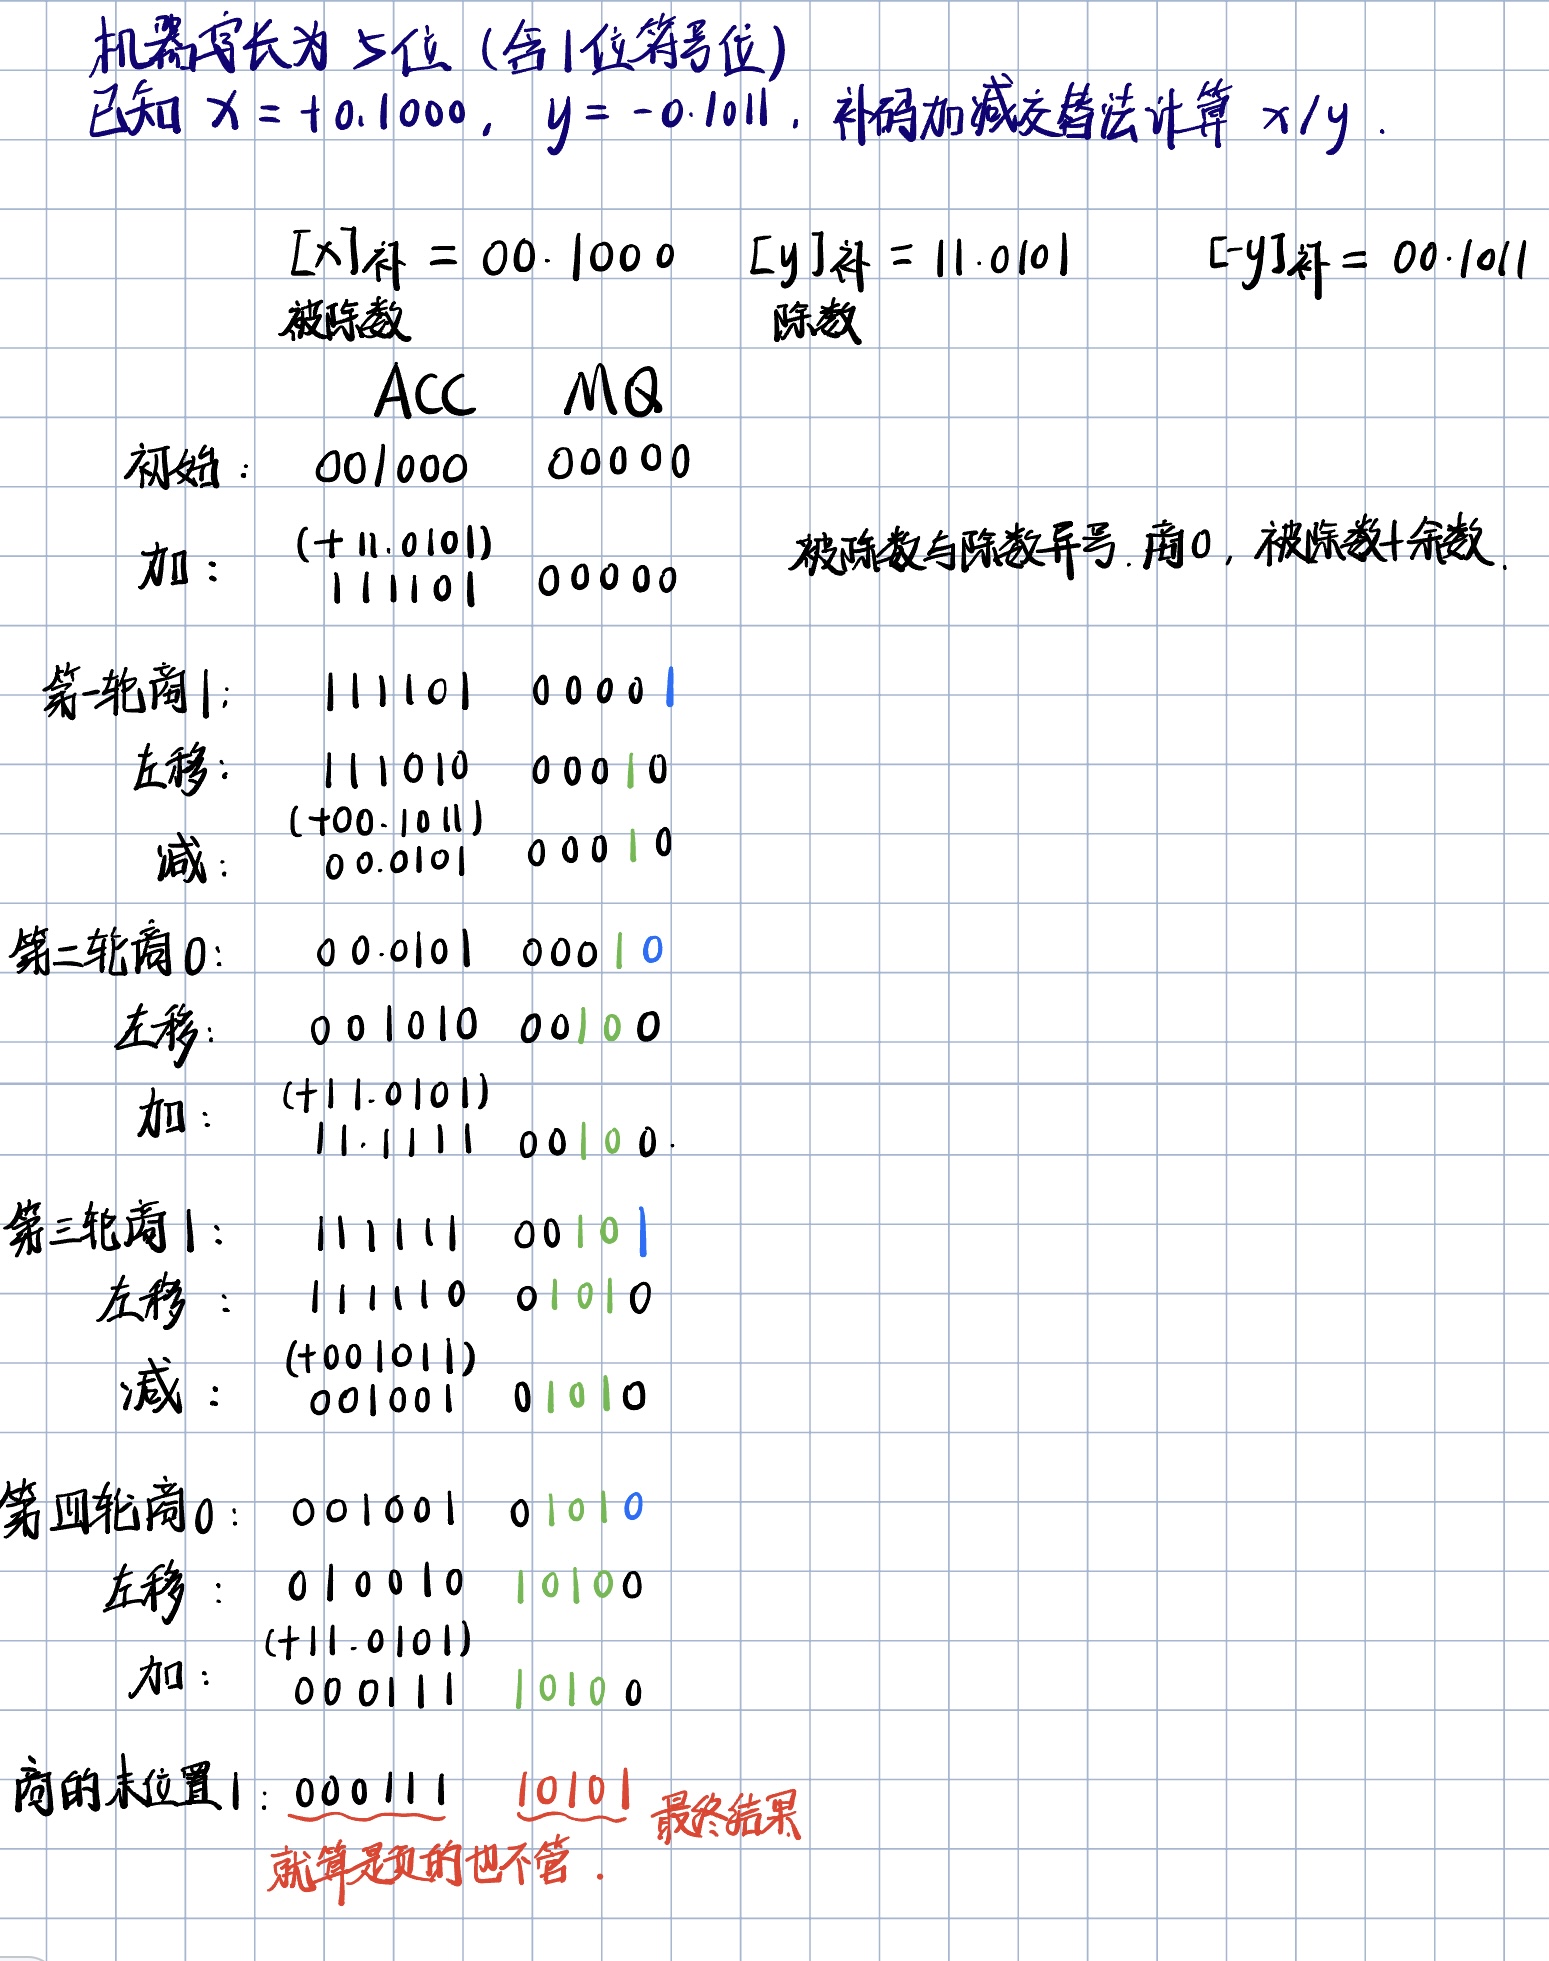 机器字长为5位(含1位符号位)
已知 x=+0.1000, y=-0.1011. 补码加减交替法计算 x/y.
[x]补 = 00.1000 [y]补 = 11.0101 [-y]补 = 00.1011
被除数 除数
ACC MQ
初始: 001000 00000
(+11.0101)
加: 111101 00000 被除数与除数异号.商0, 被除数+余数.
第一轮商1: 111101 00001
左移: 111010 00010
(+00.1011)
减: 00.0101 00010
第二轮商0: 00.0101 00010
左移: 001010 00100
(+11.0101)
加: 11.1111 00100.
第三轮商1: 111111 00101
左移: 111110 01010
(+001011)
减: 001001 01010
第四轮商0: 001001 01010
左移: 010010 10100
(+11.0101)
加: 000111 10100
商的末位置1: 000111 10101 最终结果
就算是负的也不管.